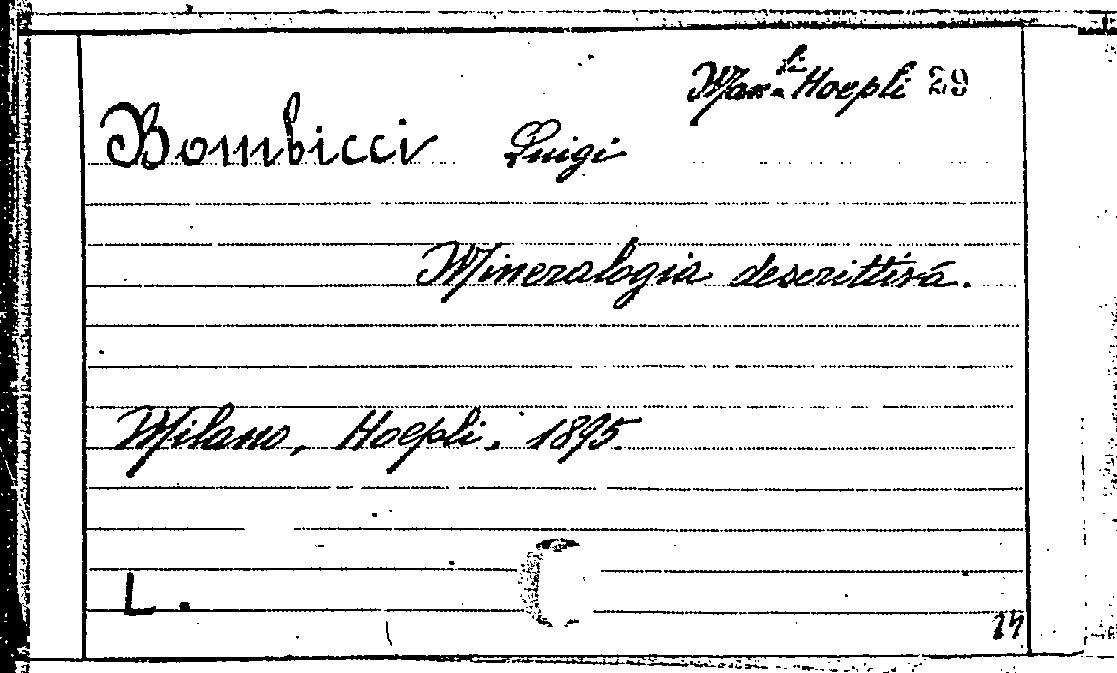 Man.li Hoepli 29
Bombicci Luigi
Mineralogia descrittiva.
Milano, Hoepli, 1895.
L.